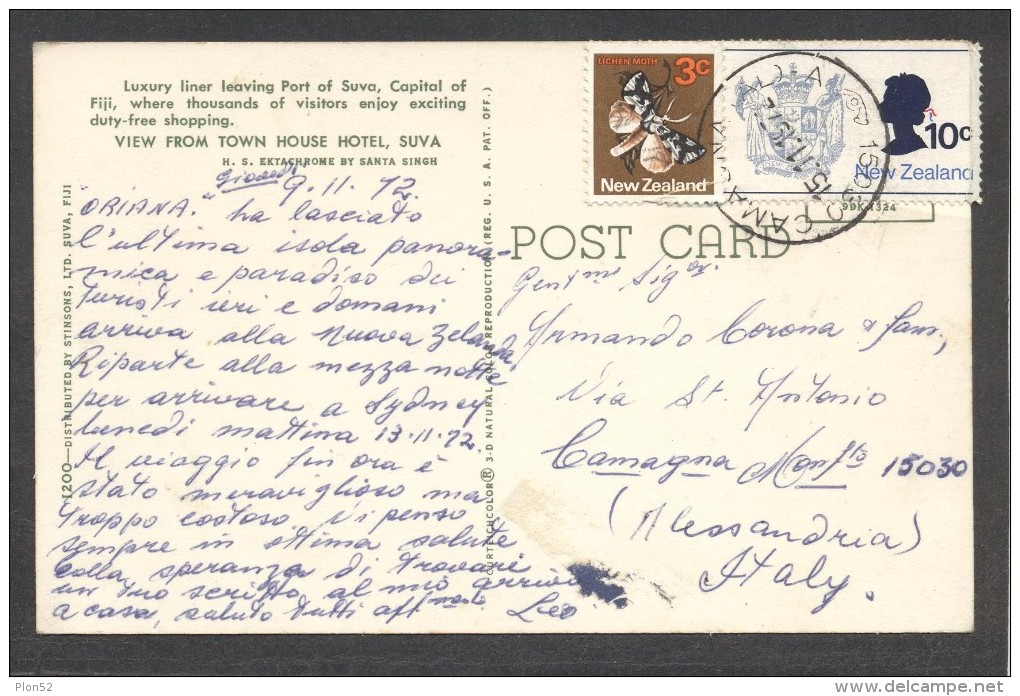 Luxury liner leaving Port of Suva, Capital of
Fiji, where thousands of visitors enjoy exciting
duty-free shopping.
VIEW FROM TOWN HOUSE HOTEL, SUVA
H. S. EKTACHROME BY SANTA SINGH
Giovedi 9.11.72
"ORIANA." ha lasciato
l'ultima isola panora-
mica e paradiso dei
turisti ieri e domani
arriva alla Nuova Zelanda
Riparte alla mezza notte
per arrivare a Sydney
lunedi mattina 13.11.72.
Il viaggio fin ora è
stato meraviglioso ma
troppo costoso. Vi penso
sempre in ottima salute
colla speranza di trovare
un tuo scritto al mio arrivo
a casa, saluto tutti aff mente Leo
1200—DISTRIBUTED BY STINSONS, LTD. SUVA, FIJI
CURTEICHCOLOR® 3-D NATURAL COLOR REPRODUCTION (REG. U. S. A. PAT. OFF.)
LICHEN MOTH 3c
New Zealand
10c
New Zealand
15030 CAMAGNA
9DK-1324
POST CARD
Gent mo Sig or.
Armando Corona & Fam,
Via St. Antonio
Camagna Monfto 15030
(Alessandria)
Italy.
Plon52
delcampe.net